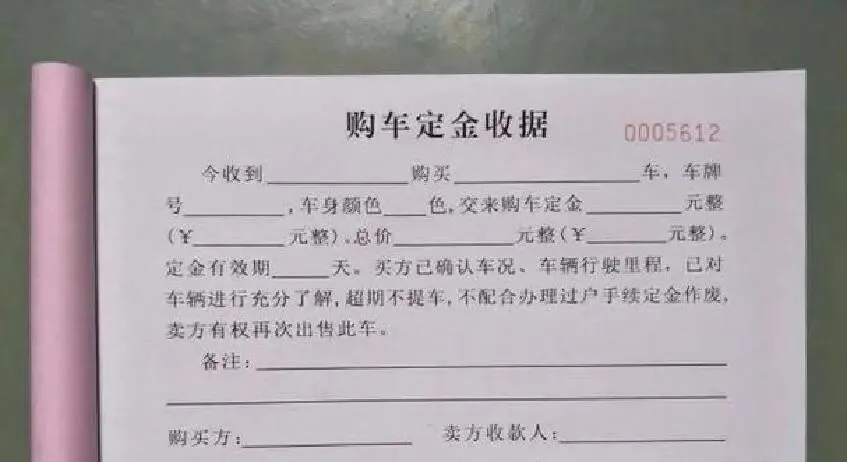 购车定金收据 0005612
今收到__________购买__________车，车牌
号__________，车身颜色____色，交来购车定金________元整
（¥________元整）.总价__________元整（¥________元整）。
定金有效期_____天。买方已确认车况、车辆行驶里程，已对
车辆进行充分了解，超期不提车，不配合办理过户手续定金作废，
卖方有权再次出售此车。
备注：______________________________
购买方：____________ 卖方收款人：____________